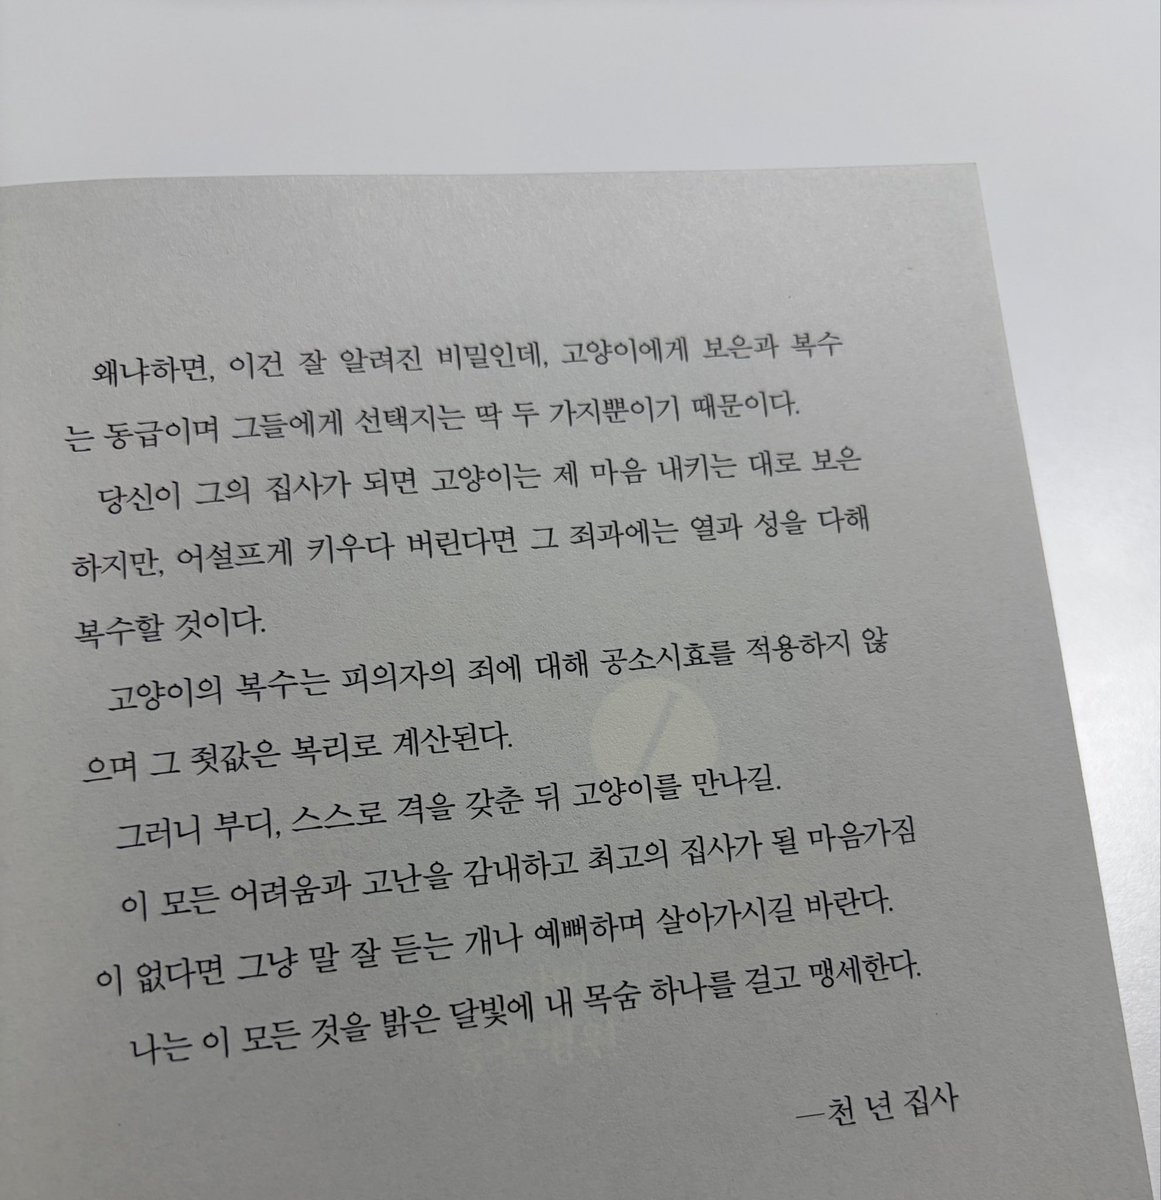 왜냐하면, 이건 잘 알려진 비밀인데, 고양이에게 보은과 복수
는 동급이며 그들에게 선택지는 딱 두 가지뿐이기 때문이다.
당신이 그의 집사가 되면 고양이는 제 마음 내키는 대로 보은
하지만, 어설프게 키우다 버린다면 그 죄과에는 열과 성을 다해
복수할 것이다.
고양이의 복수는 피의자의 죄에 대해 공소시효를 적용하지 않
으며 그 죗값은 복리로 계산된다.
그러니 부디, 스스로 격을 갖춘 뒤 고양이를 만나길.
이 모든 어려움과 고난을 감내하고 최고의 집사가 될 마음가짐
이 없다면 그냥 말 잘 듣는 개나 예뻐하며 살아가시길 바란다.
나는 이 모든 것을 밝은 달빛에 내 목숨 하나를 걸고 맹세한다.
—천 년 집사